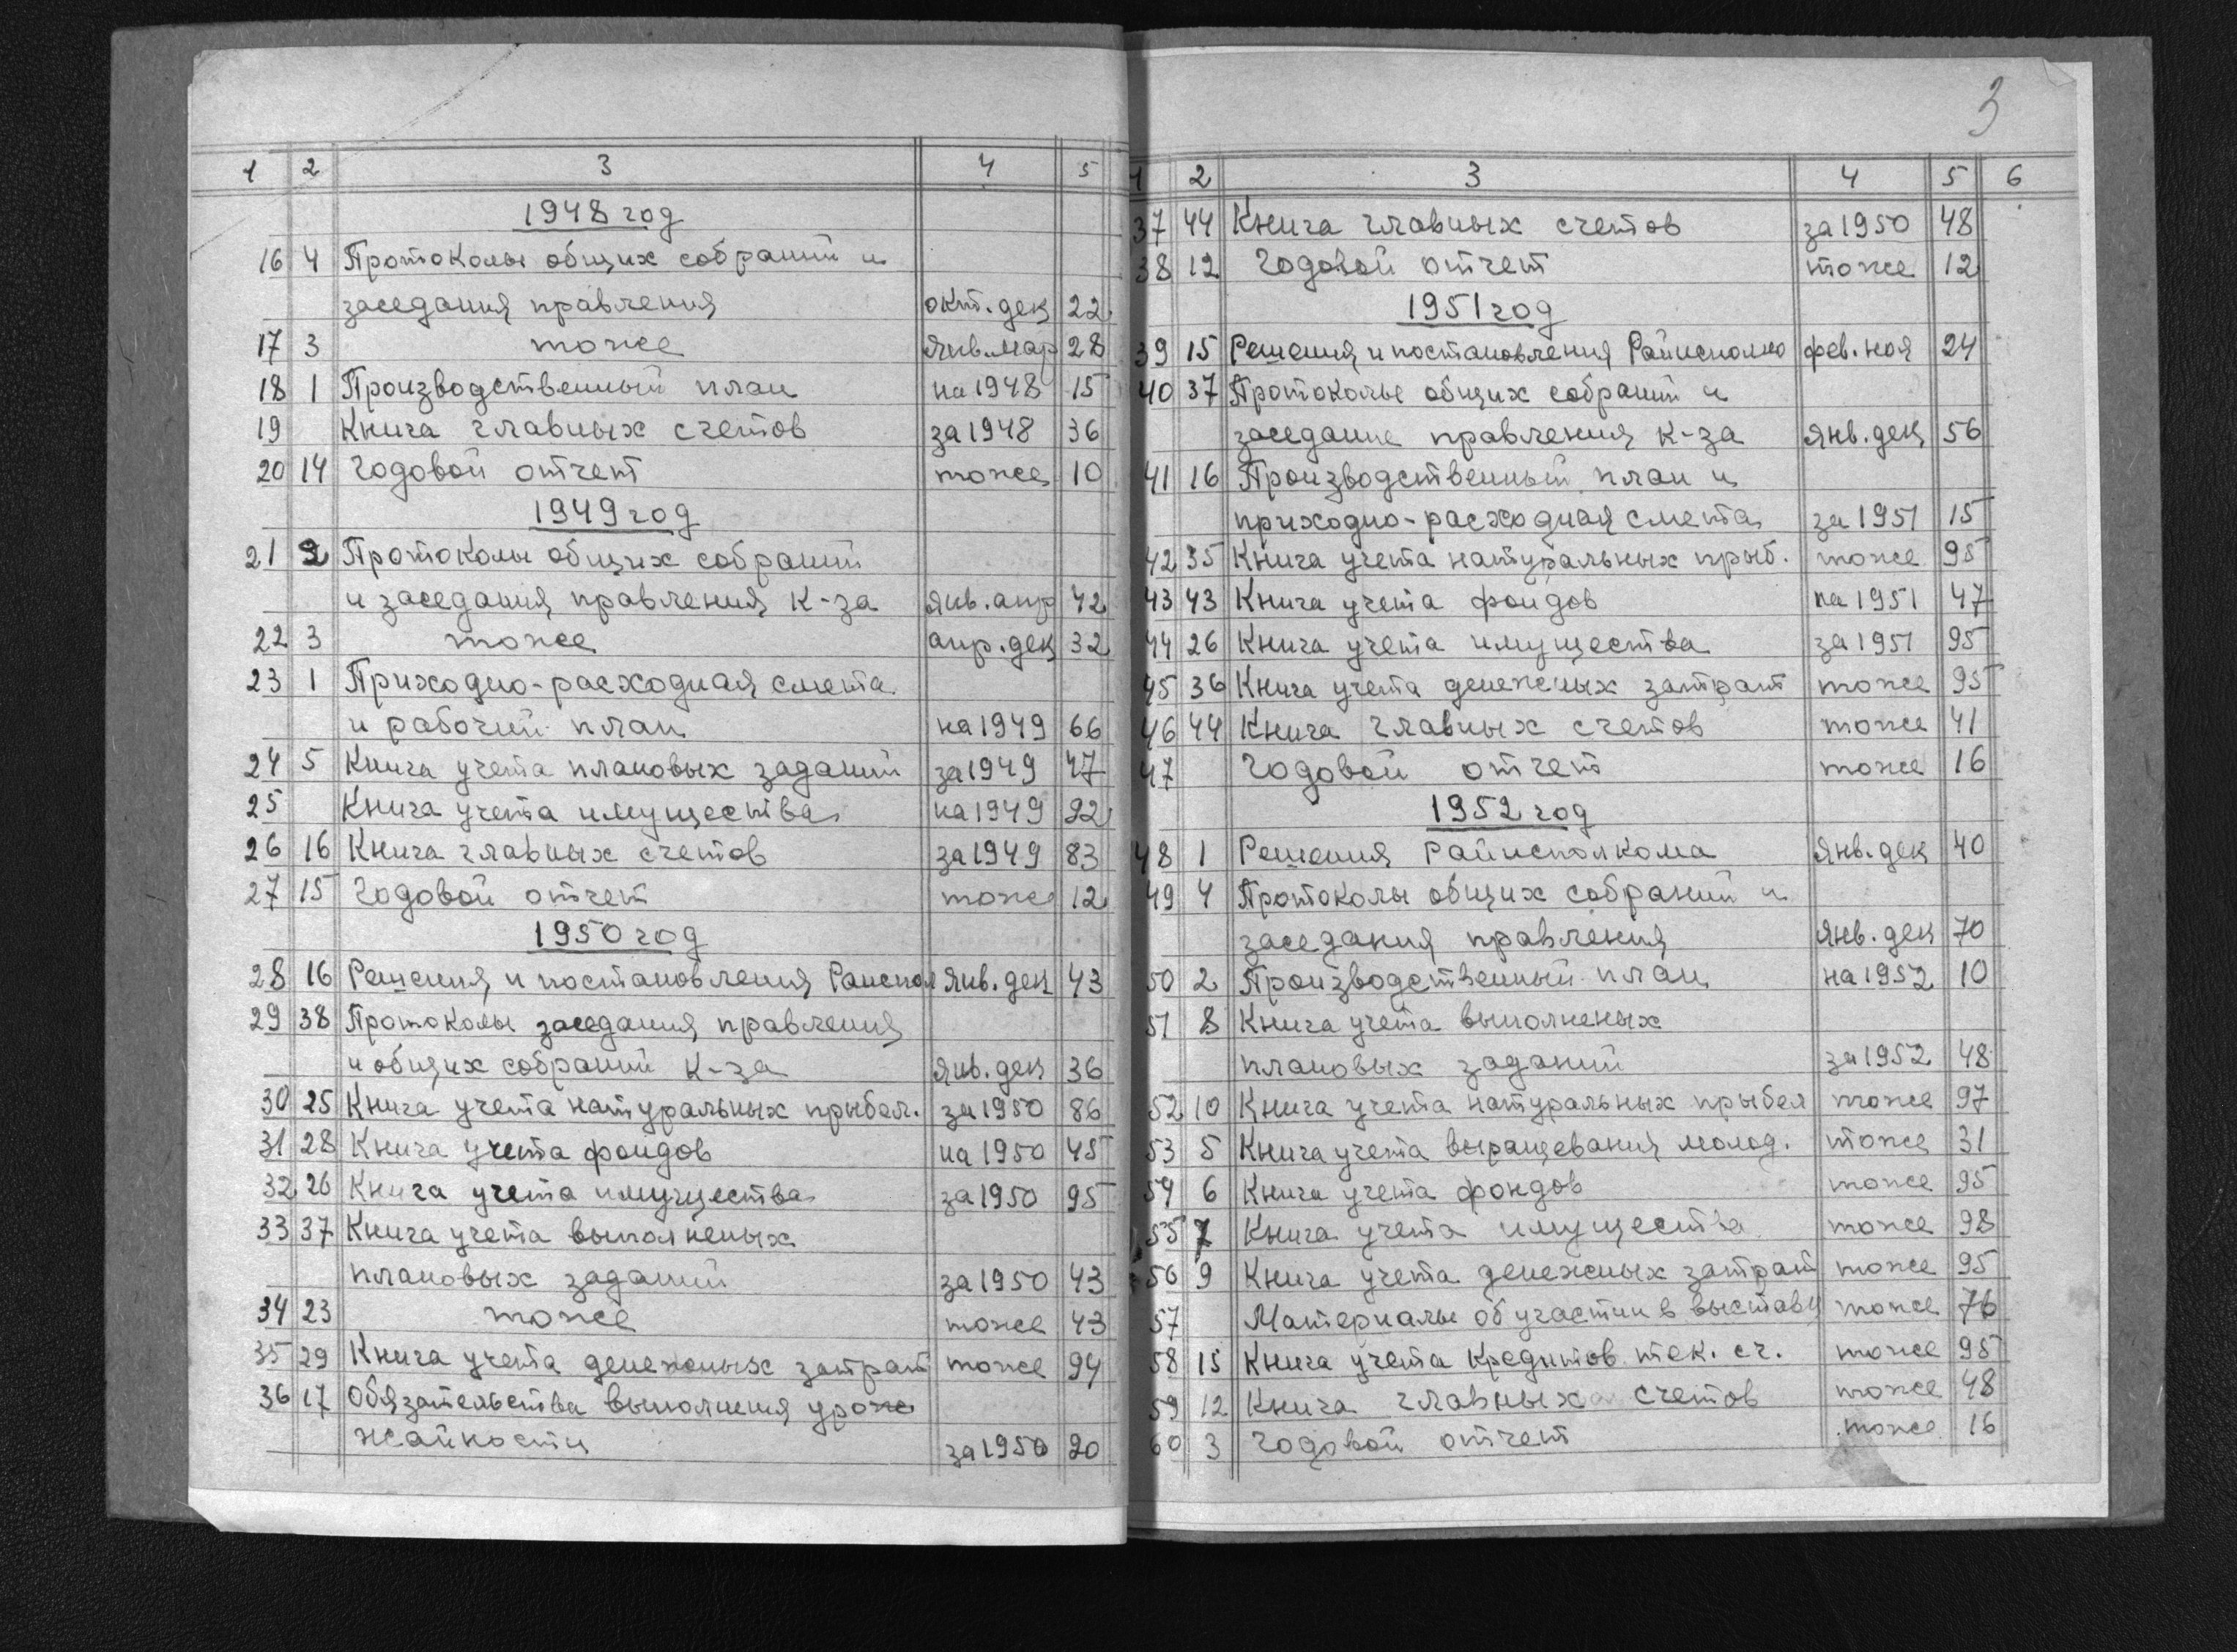 1 2 3 4 5
1948 год
16 4 Протоколы общих собраний и
заседания правления окт.дек 22
17 3 тоже янв.мар 28
18 1 Производственный план на 1948 15
19 Книга главных счетов за 1948 36
20 14 Годовой отчет тоже 10
1949 год
21 2 Протоколы общих собраний
и заседания правления к-за янв.апр 42
22 3 тоже апр.дек 32
23 1 Приходно-расходная смета
и рабочий план на 1949 66
24 5 Книга учета плановых заданий за 1949 47
25 Книга учета имущества на 1949 92
26 16 Книга главных счетов за 1949 83
27 15 Годовой отчет тоже 12
1950 год
28 16 Решения и постановления Раиспол янв.дек 43
29 38 Протоколы заседания правления
и общих собраний к-за янв.дек 36
30 25 Книга учета натуральных прыбел. за 1950 86
31 28 Книга учета фондов на 1950 45
32 26 Книга учета имущества за 1950 95
33 37 Книга учета выполненых
плановых заданий за 1950 43
34 23 тоже тоже 43
35 29 Книга учета денежных затрат тоже 94
36 17 Обязательства выполнения уро
жайности за 1950 20
3
1 2 3 4 5 6
37 44 Книга главных счетов за 1950 48
38 12 Годовой отчет тоже 12
1951 год
39 15 Решения и постановления Райисполко фев.ноя 24
40 37 Протоколы общих собраний и
заседание правления к-за янв.дек 56
41 16 Производственный план и
приходно-расходная смета за 1951 15
42 35 Книга учета натуральных прыб. тоже 95
43 43 Книга учета фондов на 1951 47
44 26 Книга учета имущества за 1951 95
45 36 Книга учета денежных затрат тоже 95
46 44 Книга главных счетов тоже 41
47 Годовой отчет тоже 16
1952 год
48 1 Решения Райисполкома янв.дек 40
49 4 Протоколы общих собраний и
заседания правления янв.дек 70
50 2 Производственный план на 1952 10
51 8 Книга учета выполненых
плановых заданий за 1952 48
52 10 Книга учета натуральных прыбел тоже 97
53 5 Книга учета выращевания молод. тоже 31
54 6 Книга учета фондов тоже 95
55 7 Книга учета имущества тоже 98
56 9 Книга учета денежных затрат тоже 95
57 Материалы об участии в выставц тоже 76
58 15 Книга учета кредитов тек. сч. тоже 95
59 12 Книга главных счетов тоже 48
60 3 Годовой отчет тоже 16